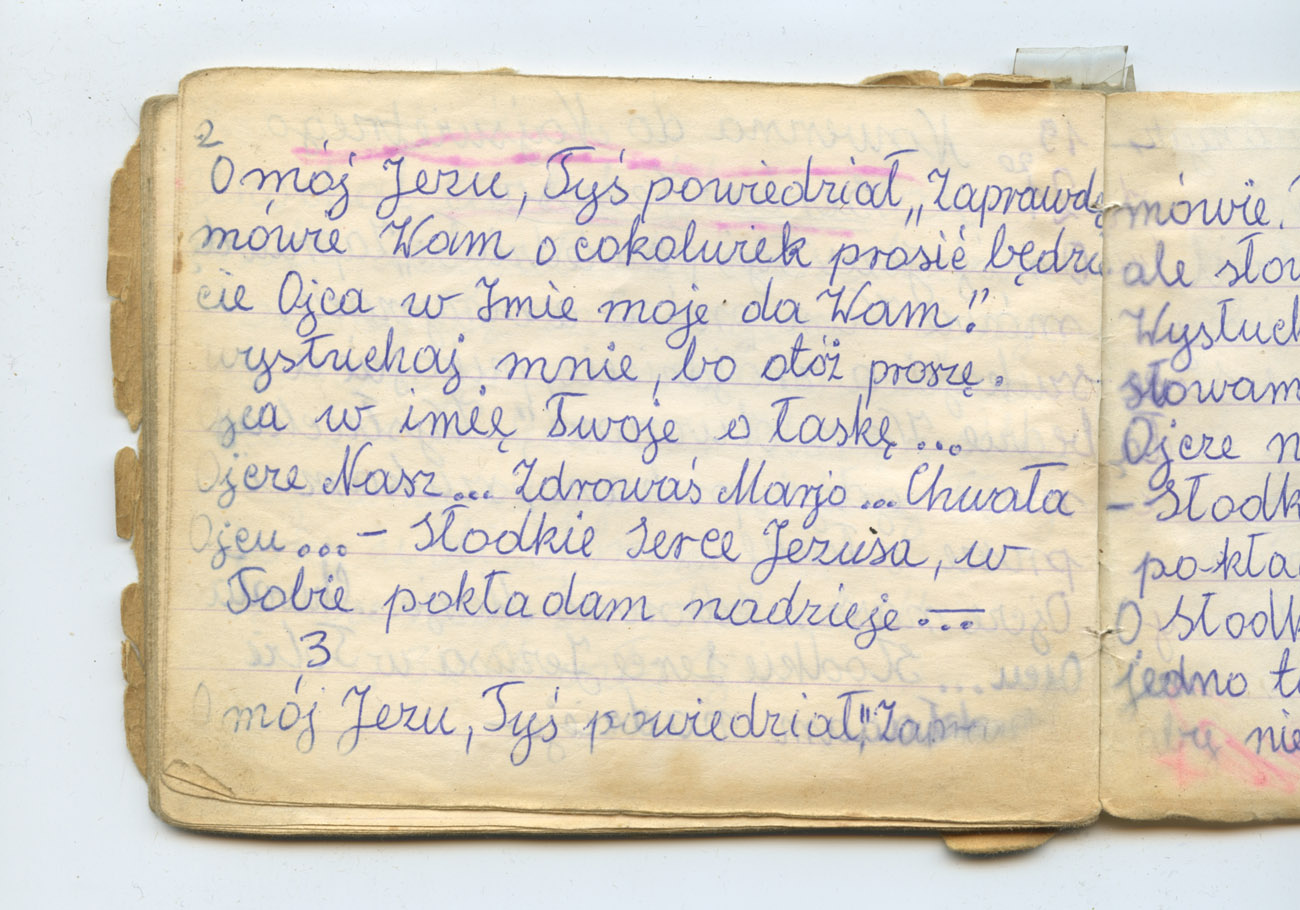 2
O mój Jezu, Tyś powiedział „Zaprawdę
mówie Wam o cokolwiek prosić będzie
cie Ojca w Imie moje da Wam!"
wysłuchaj mnie, bo otóż proszę.
jca w imię Twoje o łaskę...
Ojcze Nasz... Zdrowaś Marjo... Chwała
Ojcu...- Słodkie Serce Jezusa, w
Tobie pokładam nadzieje -...
3
O mój Jezu, Tyś powiedział, "Zapra
mówie.
ale słow
Wysłuch
słowam
Ojcze n
- Słodk
pokła
O Słodk
jedno t
nie